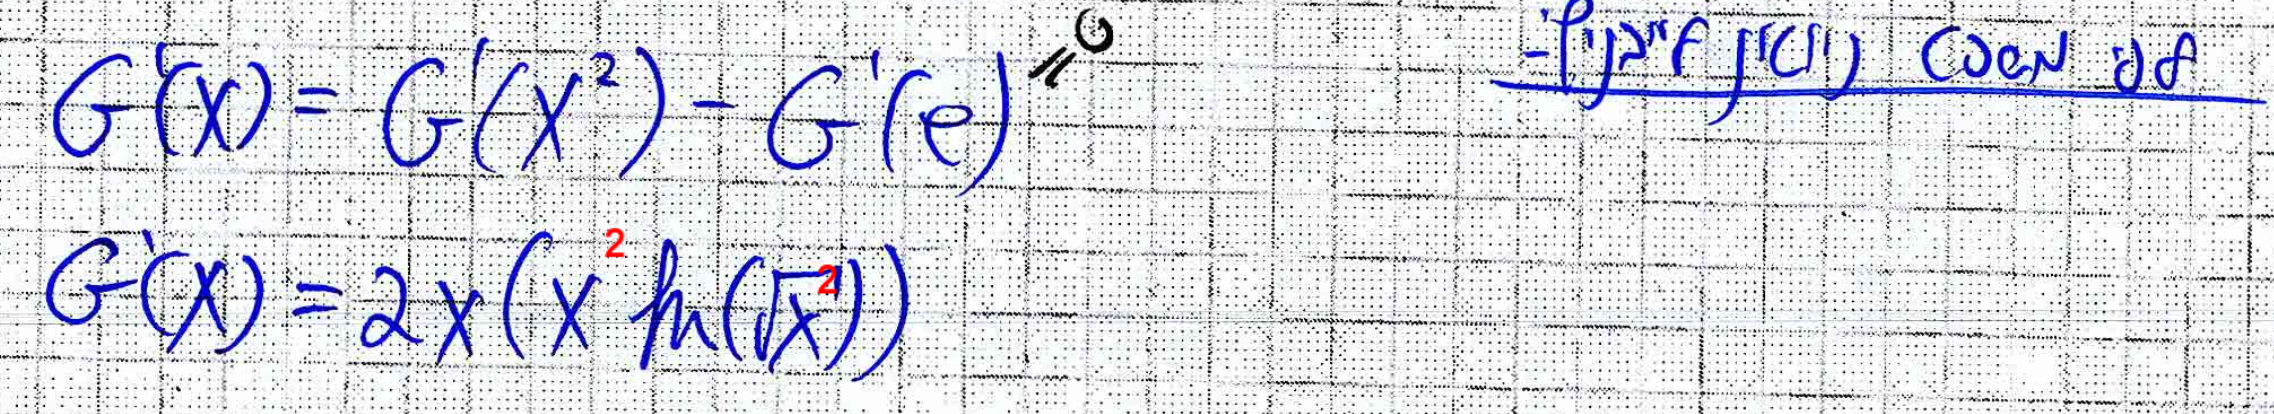 על פי משפט ניוטון לייבניץ-
G'(x) = G'(x²) - G'(e) = 0
G'(x) = 2x(x² ln(√x²))